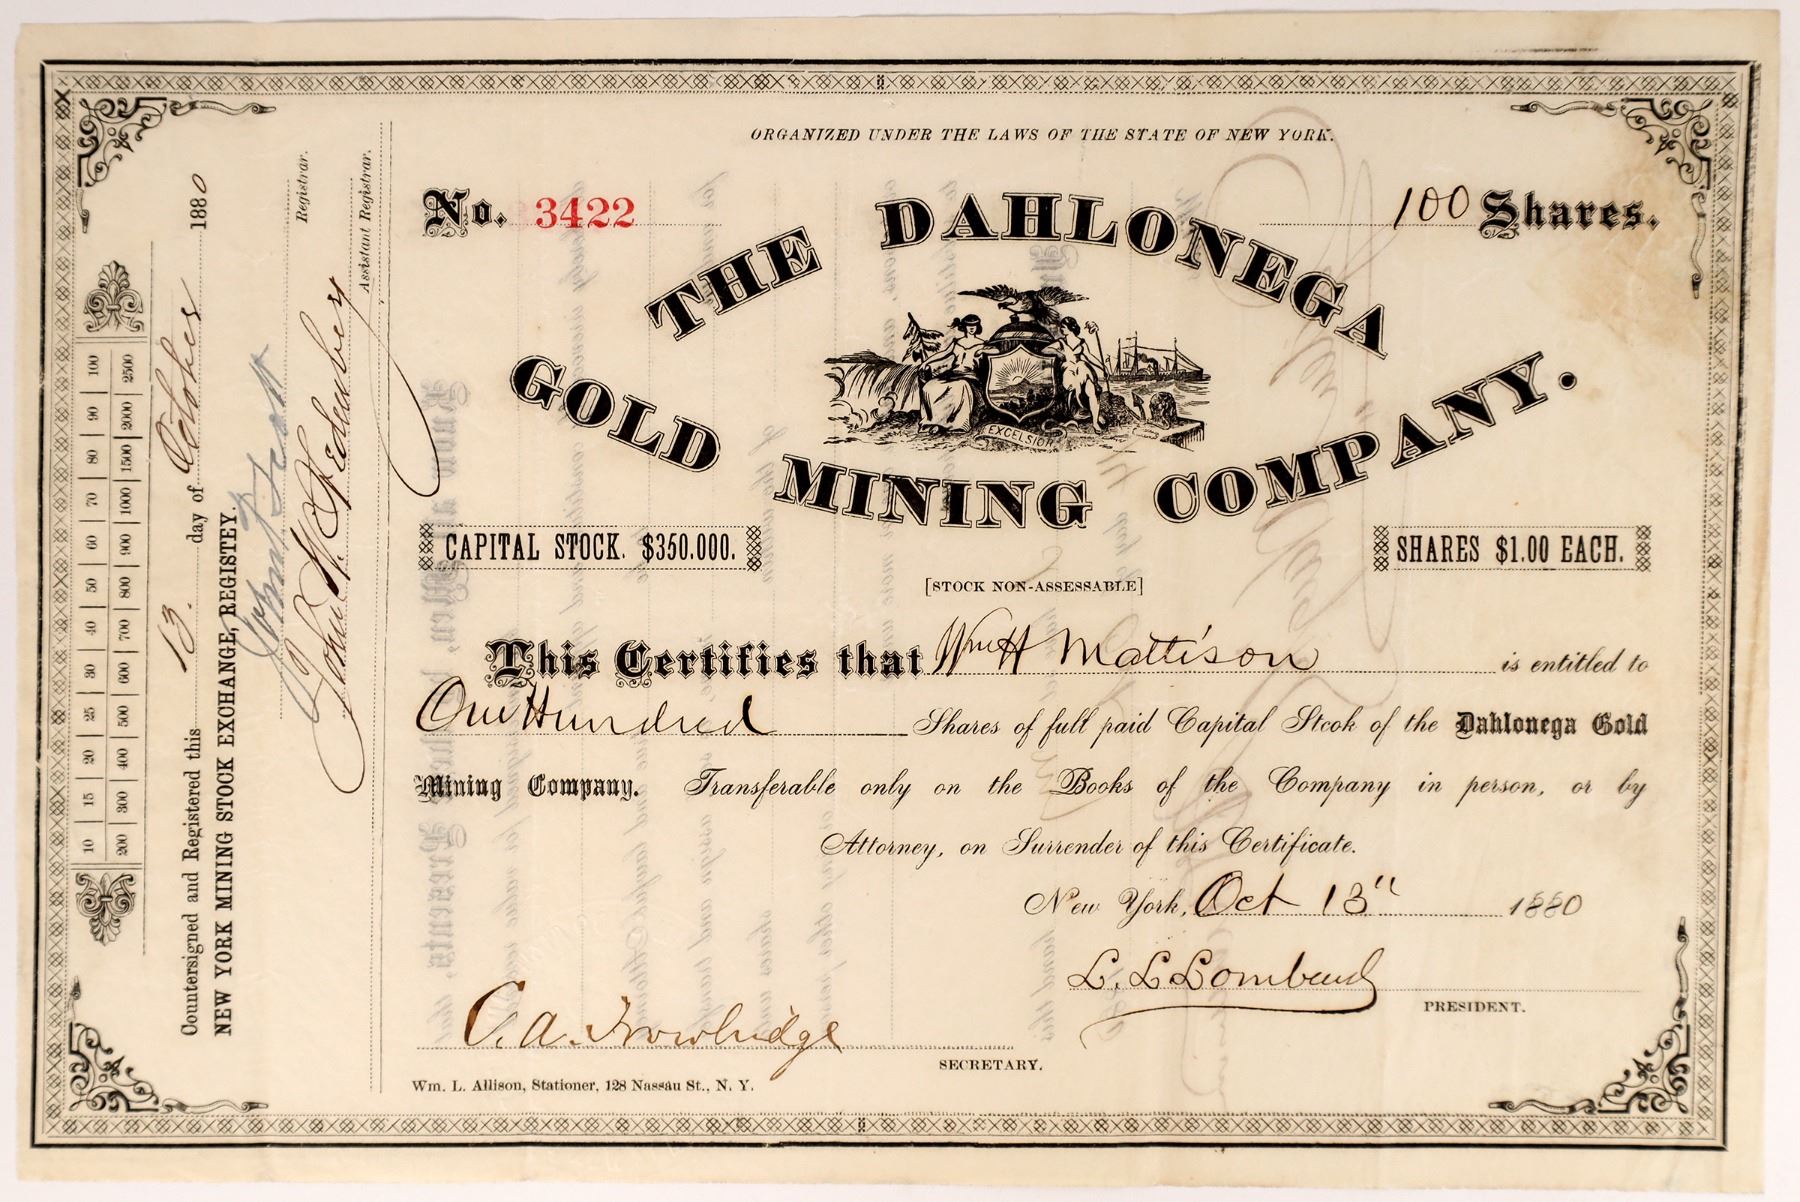 ORGANIZED UNDER THE LAWS OF THE STATE OF NEW YORK.
No. 3422
100 Shares.
THE DAHLONEGA
GOLD MINING COMPANY.
EXCELSIOR
CAPITAL STOCK. $350.000.
SHARES $1.00 EACH.
[STOCK NON-ASSESSABLE]
This Certifies that Wm H Mattison is entitled to
One Hundred Shares of full paid Capital Stcok of the Dahlonega Gold
Mining Company. Transferable only on the Books of the Company in person, or by
Attorney, on Surrender of this Certificate.
New York, Oct 13" 1880
L. L. Lombard
PRESIDENT.
C. A. Trowbridge
SECRETARY.
Wm. L. Allison, Stationer, 128 Nassau St., N. Y.
10 15 20 25 30 40 50 60 70 80 90 100
200 300 400 500 600 700 800 900 1000 1500 2000 2500
Countersigned and Registered this 13. day of October 1880
NEW YORK MINING STOCK EXOHANGE, REGISTEY.
Scott
Registrar.
John W.
Assistant Registrar.